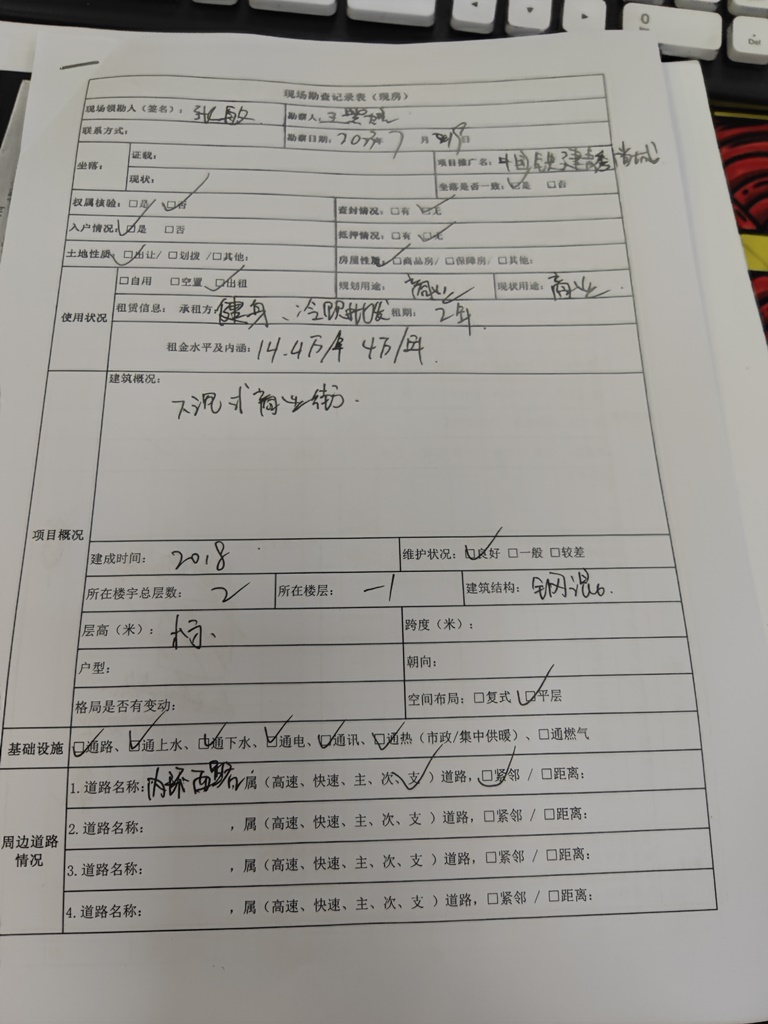 现场勘查记录表（现房）
现场领勘人（签名）：张敏 勘察人：
联系方式： 勘察日期：2023年7月 日
坐落： 证载： 项目推广名：中国铁建
现状： 坐落是否一致：☑是 □否
权属核验：□是 ☑否 查封情况：□有 ☑无
入户情况：☑是 □否 抵押情况：□有 ☑无
土地性质：☑出让/ □划拨 /□其他： 房屋性质：☑商品房/ □保障房/ □其他：
使用状况 □自用 □空置 ☑出租 规划用途：商业 现状用途：商业
租赁信息：承租方：健身、冷饮批发 租期：2年
租金水平及内涵：14.4万/年 4万/年
项目概况 建筑概况：
下沉式商业街.
建成时间：2018. 维护状况：☑良好 □一般 □较差
所在楼宇总层数：2 所在楼层：-1 建筑结构：钢混.
层高（米）： 跨度（米）：
户型： 朝向：
格局是否有变动： 空间布局：□复式 ☑平层
基础设施 ☑通路、☑通上水、☑通下水、☑通电、☑通讯、☑通热（市政/集中供暖）、□通燃气
周边道路情况 1.道路名称：内环西路，属（高速、快速、主、次、支✓）道路，☑紧邻 / □距离：
2.道路名称： ，属（高速、快速、主、次、支 ）道路，□紧邻 / □距离：
3.道路名称： ，属（高速、快速、主、次、支 ）道路，□紧邻 / □距离：
4.道路名称： ，属（高速、快速、主、次、支 ）道路，□紧邻 / □距离：